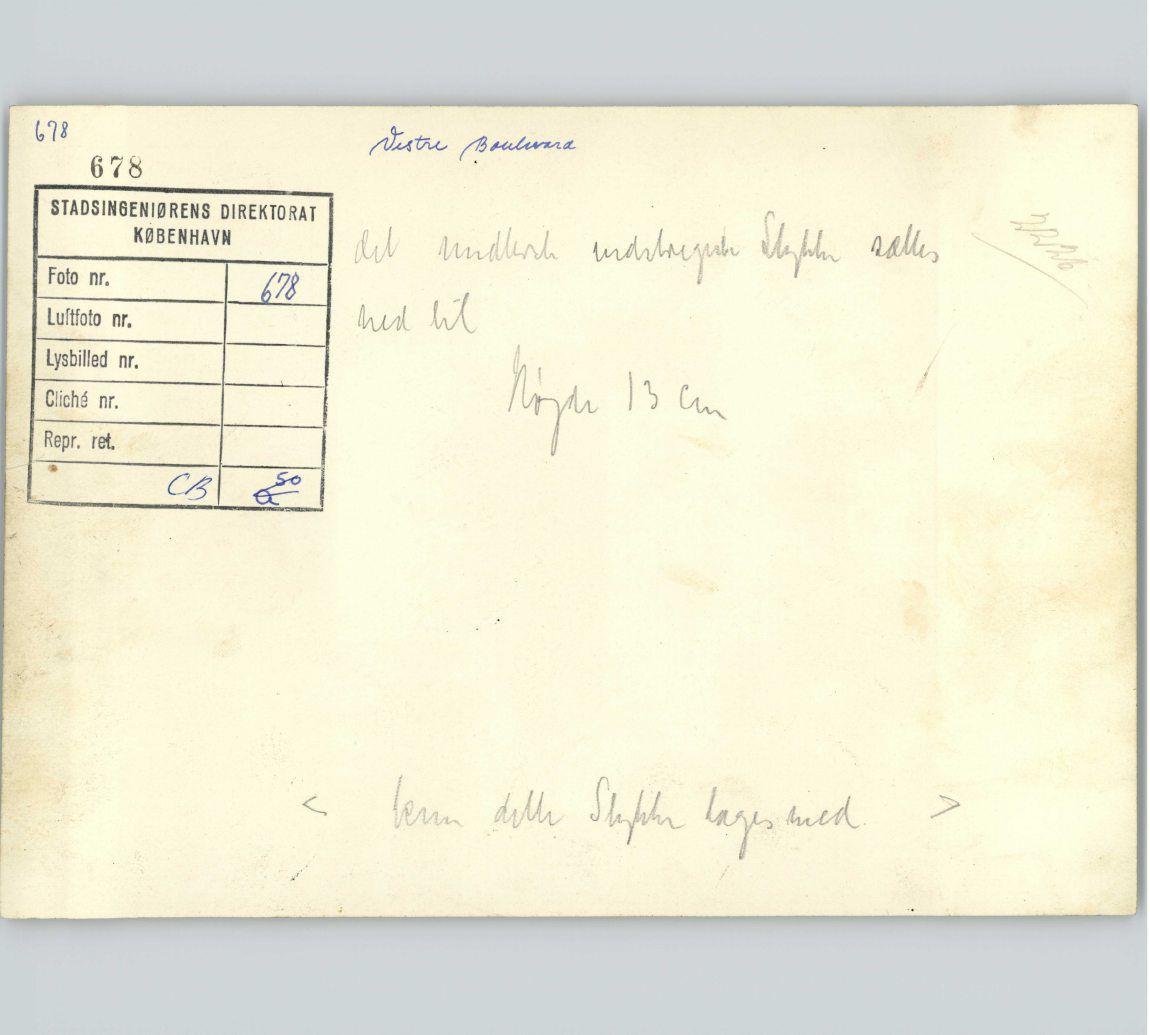 678
Vestre Boulevard
678
STADSINGENIØRENS DIREKTORAT
KØBENHAVN
Foto nr. 678
Luftfoto nr.
Lysbilled nr.
Cliché nr.
Repr. ret.
CB 50
det Stykke sættes
ned til
Højde 13 cm
< kun dette Stykke tages med. >